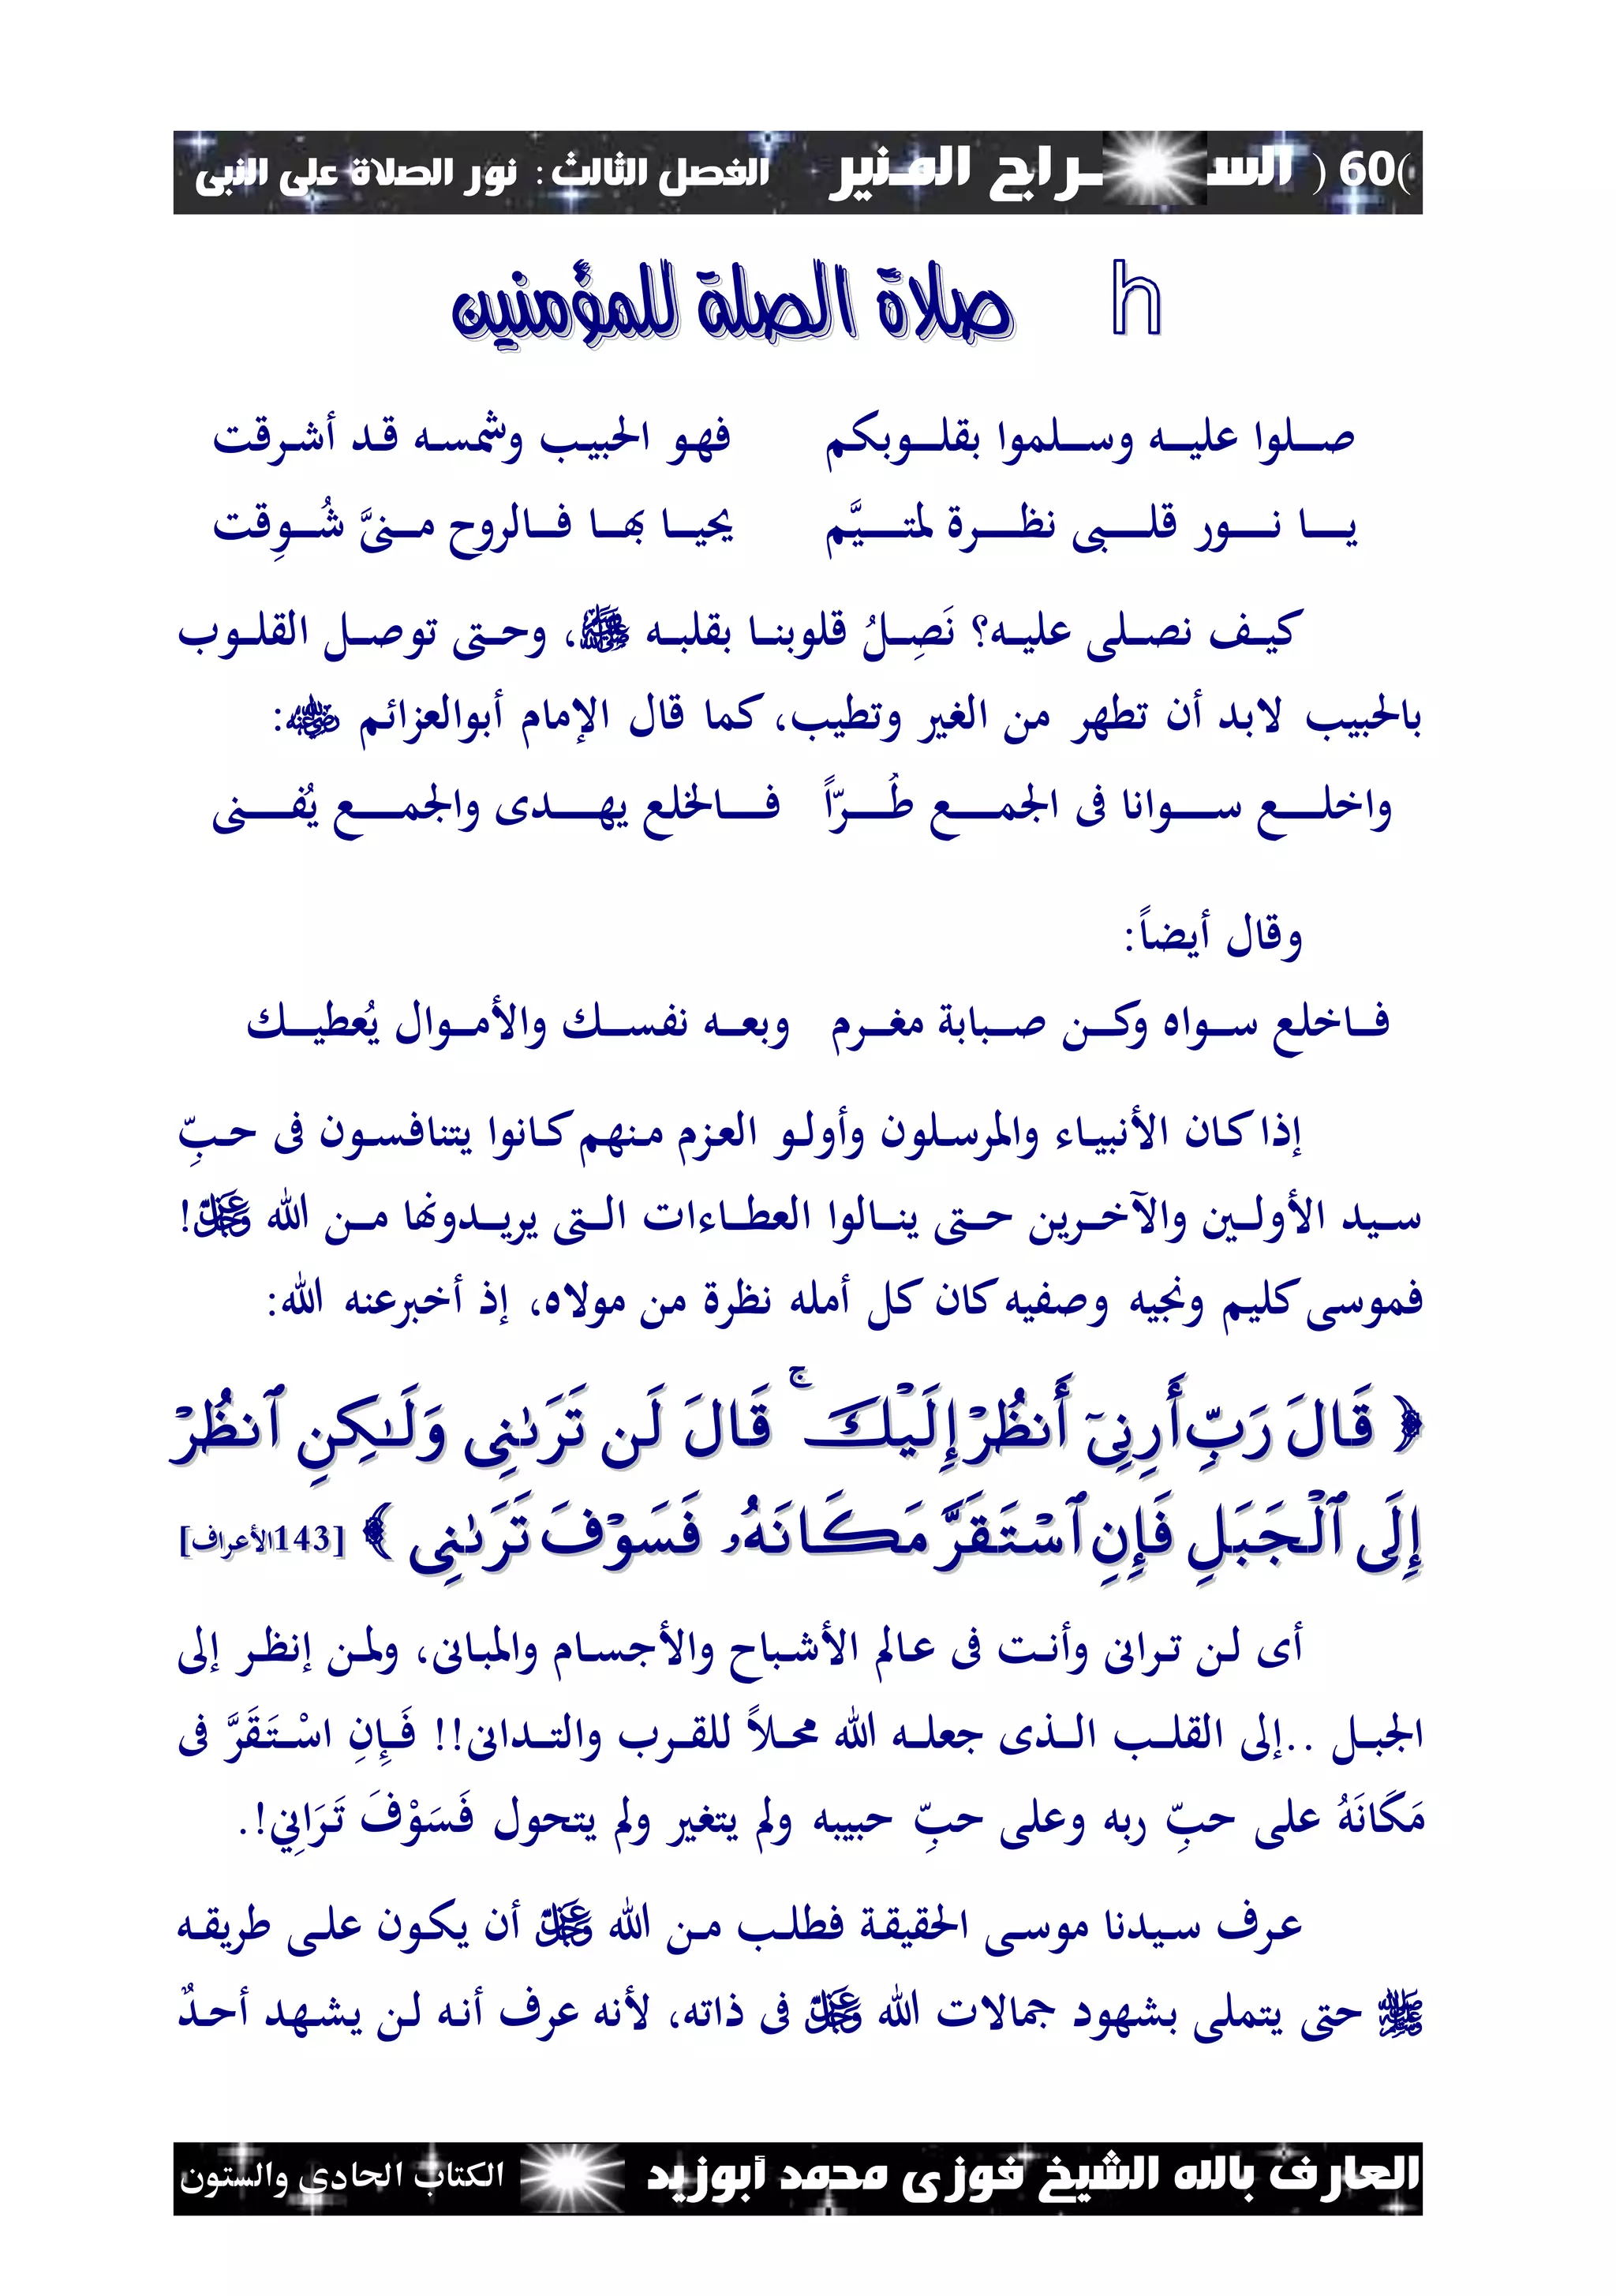 (60) السـراج المـنير الفصل الثالث: نور الصلاة على النبى
h صلاة الصلة للمؤمنين
صلوا عليه وسلموا بقلوبكم فهو الحبيب وشمسه قد أشرقت
يا نور قلبى نظرة لمتيَّم يحيا بها فالروح منىَّ شُوِقت
كيف نصلى عليه؟ نَصِلُ قلوبنا بقلبه ﷺ، وحتى توصل القلوب
بالحبيب لابد أن تطهر من الغير وتطيب، كما قال الإمام أبوالعزائم ﵁:
واخلع سوانا فى الجمع طُرّاً فالخلع يهدى والجمع يُفنى
وقال أيضاً:
فاخلع سواه وكن صبابة مغرم وبعه نفسك والأموال يُعطيك
إذا كان الأنبياء والمرسلون وأولو العزم منهم كانوا يتنافسون فى حبِّ
سيد الأولين والآخرين حتى ينالوا العطاءات التى يريدونها من الله ﷻ!
فموسى كليم ونجيه وصفيه كان كل أمله نظرة من مولاه، إذ أخبرعنه الله:
﴿ قَالَ رَبِّ أَرِنِىٓ أَنظُرْ إِلَيْكَ ۚ قَالَ لَن تَرَىٰنِى وَلَـٰكِنِ ٱنظُرْ
إِلَى ٱلْجَبَلِ فَإِنِ ٱسْتَقَرَّ مَكَانَهُۥ فَسَوْفَ تَرَىٰنِى ﴾ [143الأعراف]
أى لن ترانى وأنت فى عالم الأشباح والأجسام والمبانى، ولمن إنظر إلى
الجبل ..إلى القلب الذى جعله الله محلاً للقرب والتدانى!! فَإِنِ اسْتَقَرَّ فى
مَكَانَهُ على حبِّ ربه وعلى حبِّ حبيبه ولم يتغير ولم يتحول فَسَوْفَ تَرَانِي!.
عرف سيدنا موسى الحقيقة فطلب من الله ﷻ أن يكون على طريقه
ﷺ حتى يتملى بشهود جمالات الله ﷻ فى ذاته، لأنه عرف أنه لن يشهد أحدٌ
العارف بالله الشيخ فوزى محمد أبوزيد الكتاب الحادى والستون